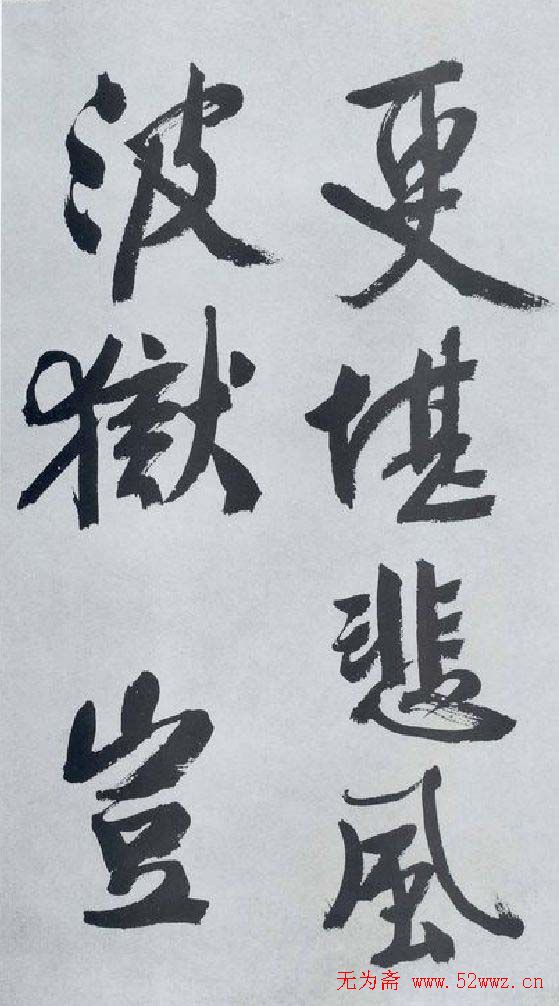 更堪悲風
波獄豈
无为斋 www.52wwz.cn